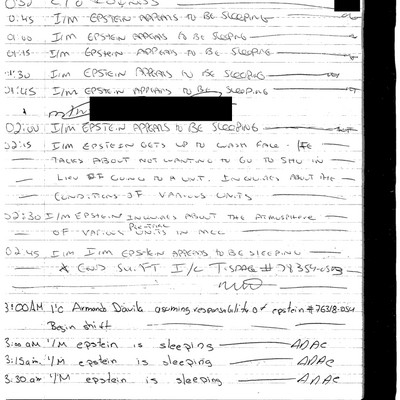 0:45 I/M EPSTEIN APPEARS TO BE SLEEPING
01:00 I/M EPSTEIN APPEARS TO BE SLEEPING
01:15 I/M EPSTEIN APPEARS TO BE SLEEPING
01:30 I/M EPSTEIN APPEARS TO BE SLEEPING
01:45 I/M EPSTEIN APPEARS TO BE SLEEPING
02:00 I/M EPSTEIN APPEARS TO BE SLEEPING
02:15 I/M EPSTEIN GETS UP TO WASH FACE. HE
TALKS ABOUT NOT WANTING TO GO TO SHU IN
LIEU OF GOING TO A UNIT. INQUIRES ABOUT THE
CONDITIONS OF VARIOUS UNITS
02:30 I/M EPSTEIN INQUIRES ABOUT THE ATMOSPHERE
OF VARIOUS UNITS IN MCC
02:45 I/M I/M EPSTEIN APPEARS TO BE SLEEPING
* END SHIFT I/C
3:00AM I/C Armando Davila assuming responsability of epstein #76318-054
Begin shift
3:00 am I/M epstein is sleeping
3:15am I/M epstein is sleeping
3:30 am I/M epstein is sleeping